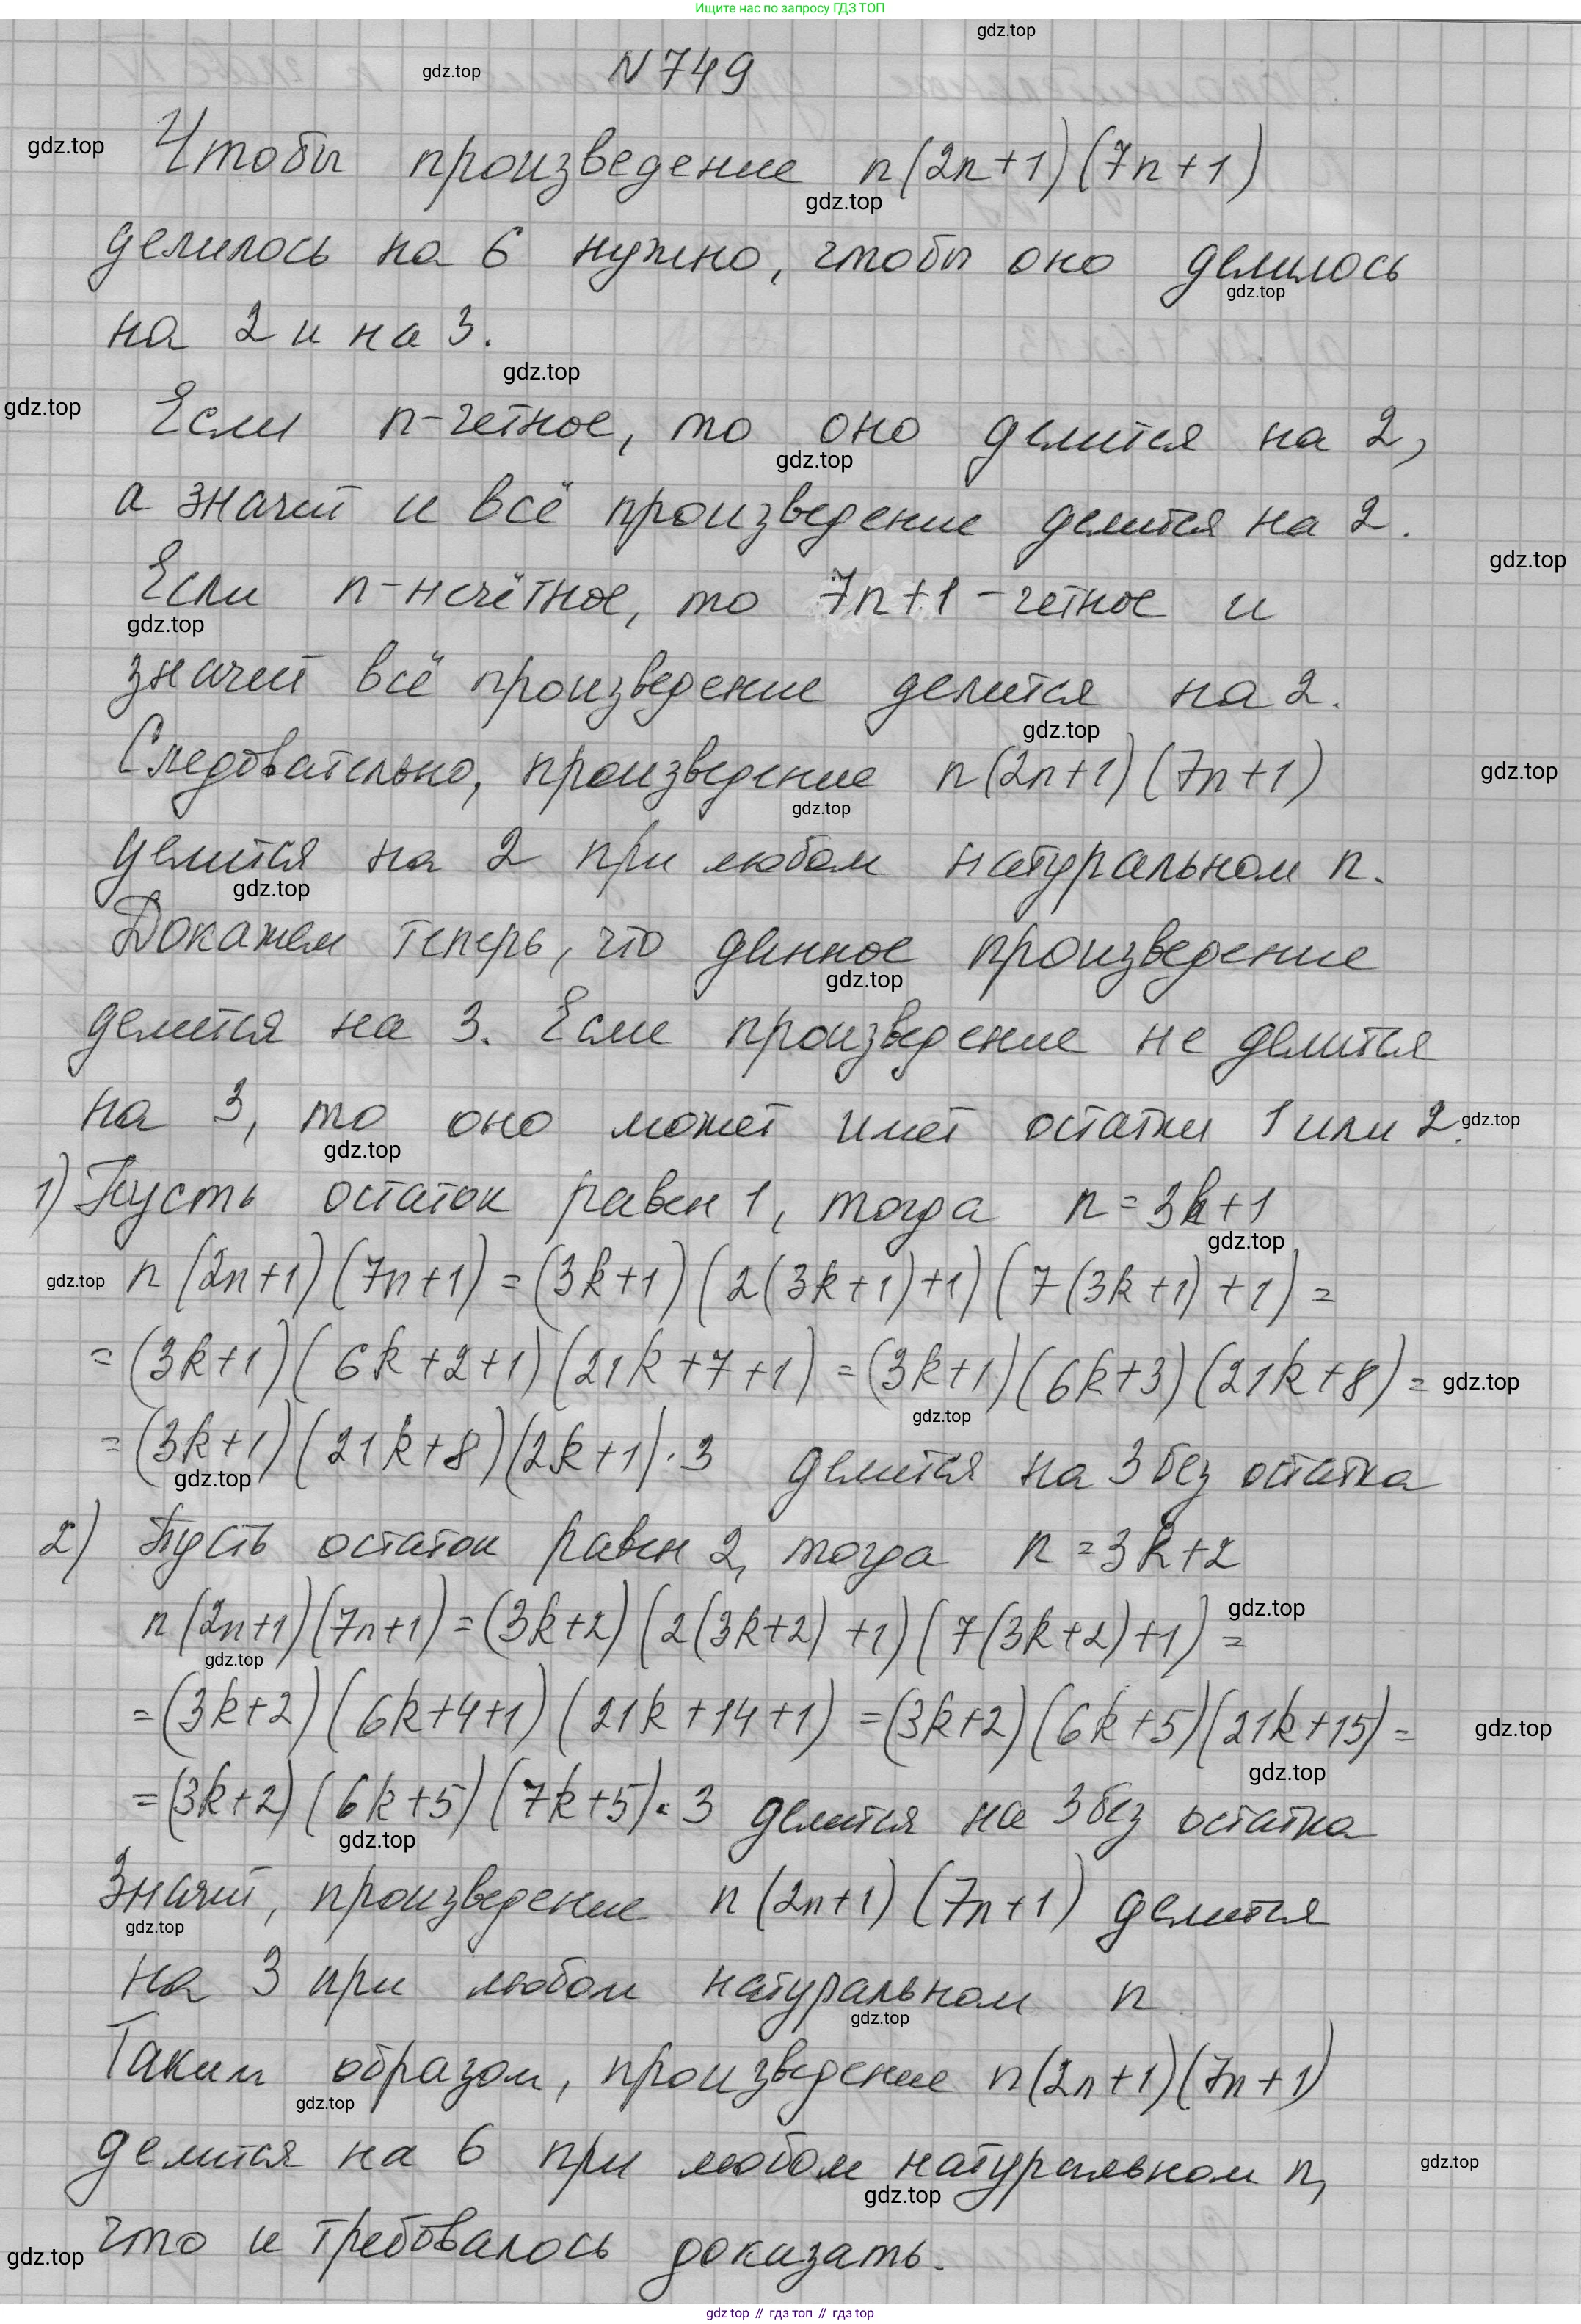 Ищите нас по запросу ГДЗ ТОП
gdz.top
N 749
gdz.top
gdz.top
Чтобы произведение n(2n+1)(7n+1)
gdz.top
делилось на 6 нужно, чтобы оно делилось
gdz.top
на 2 и на 3.
gdz.top
gdz.top
Если n-четное, то оно делится на 2,
gdz.top
а значит и всё произведение делится на 2.
gdz.top
Если n-нечётное, то 7n+1-четное и
gdz.top
значит всё произведение делится на 2.
gdz.top
Следовательно, произведение n(2n+1)(7n+1)
gdz.top
gdz.top
делится на 2 при любом натуральном n.
gdz.top
Докажем теперь, что данное произведение
gdz.top
делится на 3. Если произведение не делится
на 3, то оно может имет остатки 1 или 2.
gdz.top
gdz.top
1) Пусть остаток равен 1, тогда n=3k+1
gdz.top
gdz.top
n(2n+1)(7n+1)=(3k+1)(2(3k+1)+1)(7(3k+1)+1)=
=(3k+1)(6k+2+1)(21k+7+1)=(3k+1)(6k+3)(21k+8)=
gdz.top
gdz.top
=(3k+1)(21k+8)(2k+1)·3 делится на 3 без остатка
gdz.top
2) Пусть остаток равен 2, тогда n=3k+2
gdz.top
n(2n+1)(7n+1)=(3k+2)(2(3k+2)+1)(7(3k+2)+1)=
gdz.top
=(3k+2)(6k+4+1)(21k+14+1)=(3k+2)(6k+5)(21k+15)=
gdz.top
gdz.top
=(3k+2)(6k+5)(7k+5)·3 делится на 3 без остатка
gdz.top
Значит, произведение n(2n+1)(7n+1) делится
gdz.top
на 3 при любом натуральном n
gdz.top
Таким образом, произведение n(2n+1)(7n+1)
gdz.top
делится на 6 при любом натуральном n,
gdz.top
gdz.top
что и требовалось доказать.
gdz.top
gdz top // гдз топ // гдз top